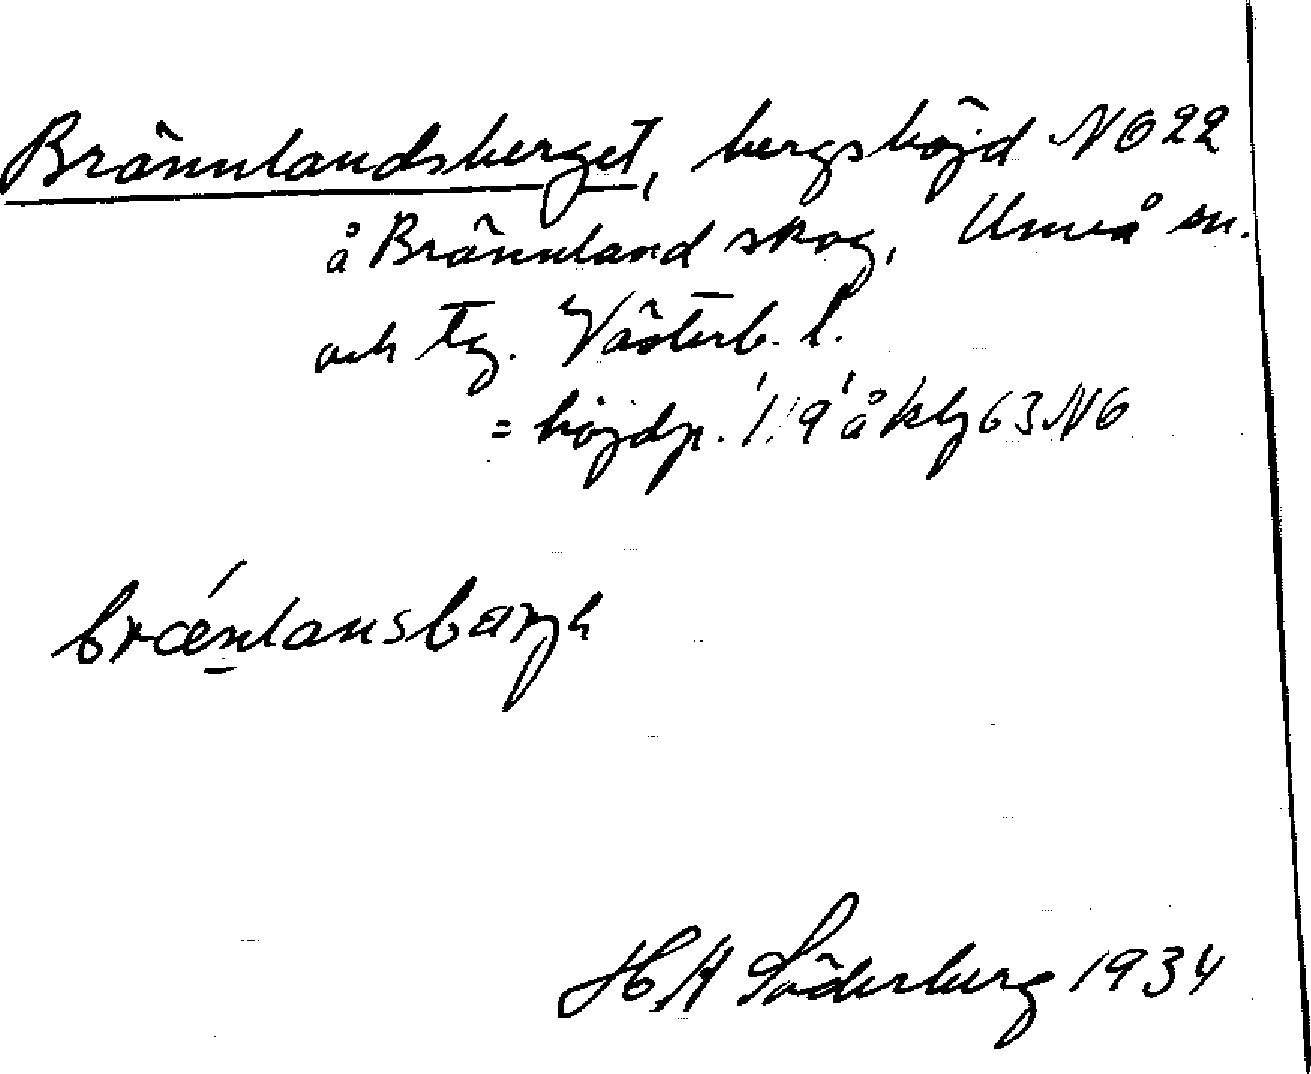 Brännlandsberget, bergshöjd NO 22
å Brännland skog, Umeå sn.
och tg. Västerb. l.
= höjdp. 119 å kbl 63 NO
brǽnlansbärjh
H A Söderberg 1934